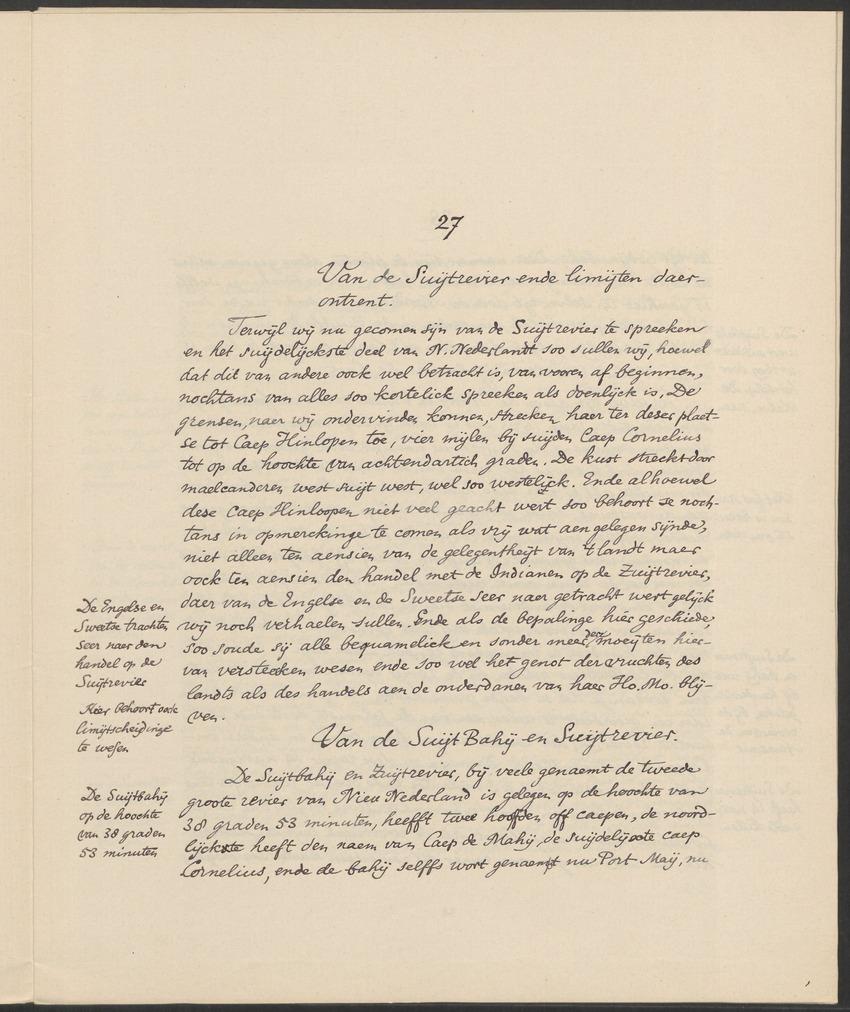 27
Van de Suijtrevier ende limijten daer-
ontrent.
Terwijl wij nu gecomen sijn van de Suijtrevier te spreeken
en het suijdelijckste deel van N. Nederlandt soo sullen wij, hoewel
dat dit van andere oock wel betracht is, van vooren af beginnen,
nochtans van alles soo kortelick spreeken als doenlijck is, De
grensen, naer wij ondervinden konnen, strecken haer ter deser plaet-
se tot Caep Hinlopen toe, vier mijlen bij suijden Caep Cornelius
tot op de hoochte van achtendartich graden. De kust streckt door
maelcanderen west suijt west, wel soo westelijck. Ende alhoewel
dese Caep Hinloopen niet veel geacht wert soo behoort se noch-
tans in opmerckinge te comen als vrij wat aengelegen sijnde,
niet alleen ten aensien van de gelegentheijt van 't landt maer
oock ten aensien den handel met de Indianen op de Zuijtrevier,
daer van de Engelse en de Sweetse seer naer getracht wert gelijck
wij noch verhaelen sullen. Ende als de bepalinge hier geschiede,
soo soude sij alle bequamelick en sonder meerder moeijten hier-
van versteeken wesen ende soo wel het genot der vruchten des
landts als des handels aen de onderdanen van haer Ho. Mo. blij-
ven.
De Engelse en
Sweetse trachten
seer naer den
handel op de
Suijtrevier
Hier behoort oock
limijtscheidinge
te wesen
Van de Suijt Bahij en Suijtrevier.
De Suijtbahij en Zuijtrevier, bij veele genaemt de tweede
groote revier van Nieu Nederland is gelegen op de hoochte van
38 graden 53 minuten, heefft twee hoofden off caepen, de noord-
lijckste heeft den naem van Caep de Mahij, de suijdelijcste caep
Cornelius, ende de bahij selffs wort genaemt nu Port Maij, nu
De Suijtbahij
op de hoochte
van 38 graden
53 minuten